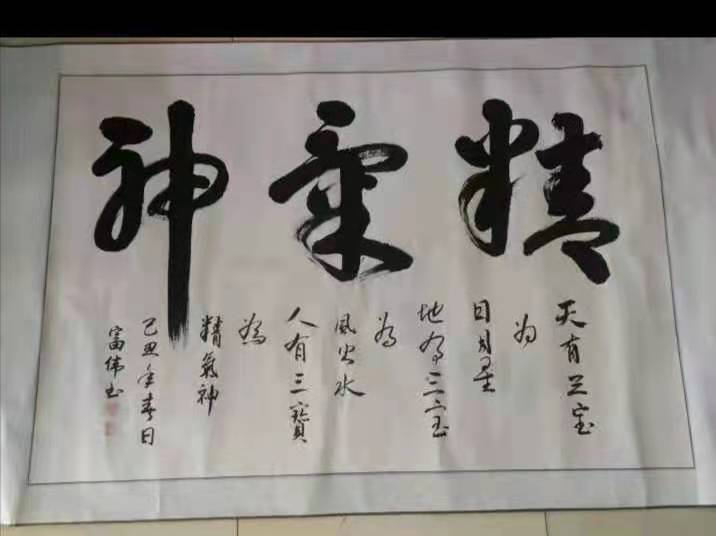 精氣神
天有三宝
为
日月星
地有三宝
为
風火水
人有三寶
為
精氣神
己丑年春日
富伟书